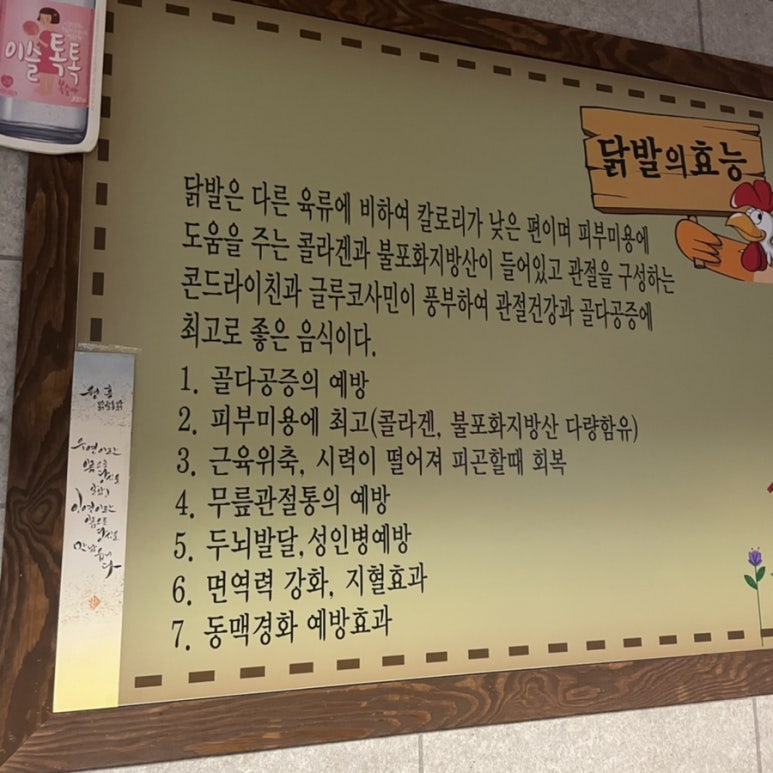 이슬톡톡
닭발의효능
닭발은 다른 육류에 비하여 칼로리가 낮은 편이며 피부미용에
도움을 주는 콜라겐과 불포화지방산이 들어있고 관절을 구성하는
콘드라이친과 글루코사민이 풍부하여 관절건강과 골다공증에
최고로 좋은 음식이다.
1. 골다공증의 예방
2. 피부미용에 최고(콜라겐, 불포화지방산 다량함유)
3. 근육위축, 시력이 떨어져 피곤할때 회복
4. 무릎관절통의 예방
5. 두뇌발달,성인병예방
6. 면역력 강화, 지혈효과
7. 동맥경화 예방효과